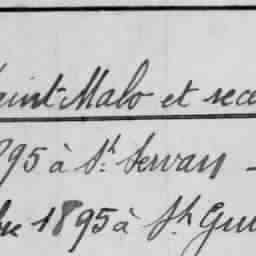 Saint-Malo et rece
895 à St. Servan -
bre 1895 à St Gui